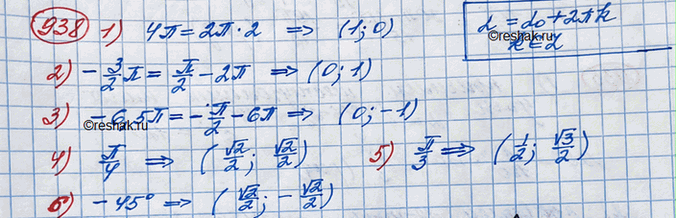 938 1) 4π = 2π·2 ⇒ (1; 0)
α = α₀ + 2πk
k ∈ Z
2) -3/2 π = π/2 - 2π ⇒ (0; 1)
3) -6,5π = -π/2 - 6π ⇒ (0; -1)
©reshak.ru
4) π/4 ⇒ (√2/2; √2/2) 5) π/3 ⇒ (1/2; √3/2)
©reshak.ru
6) -45° ⇒ (√2/2; -√2/2)